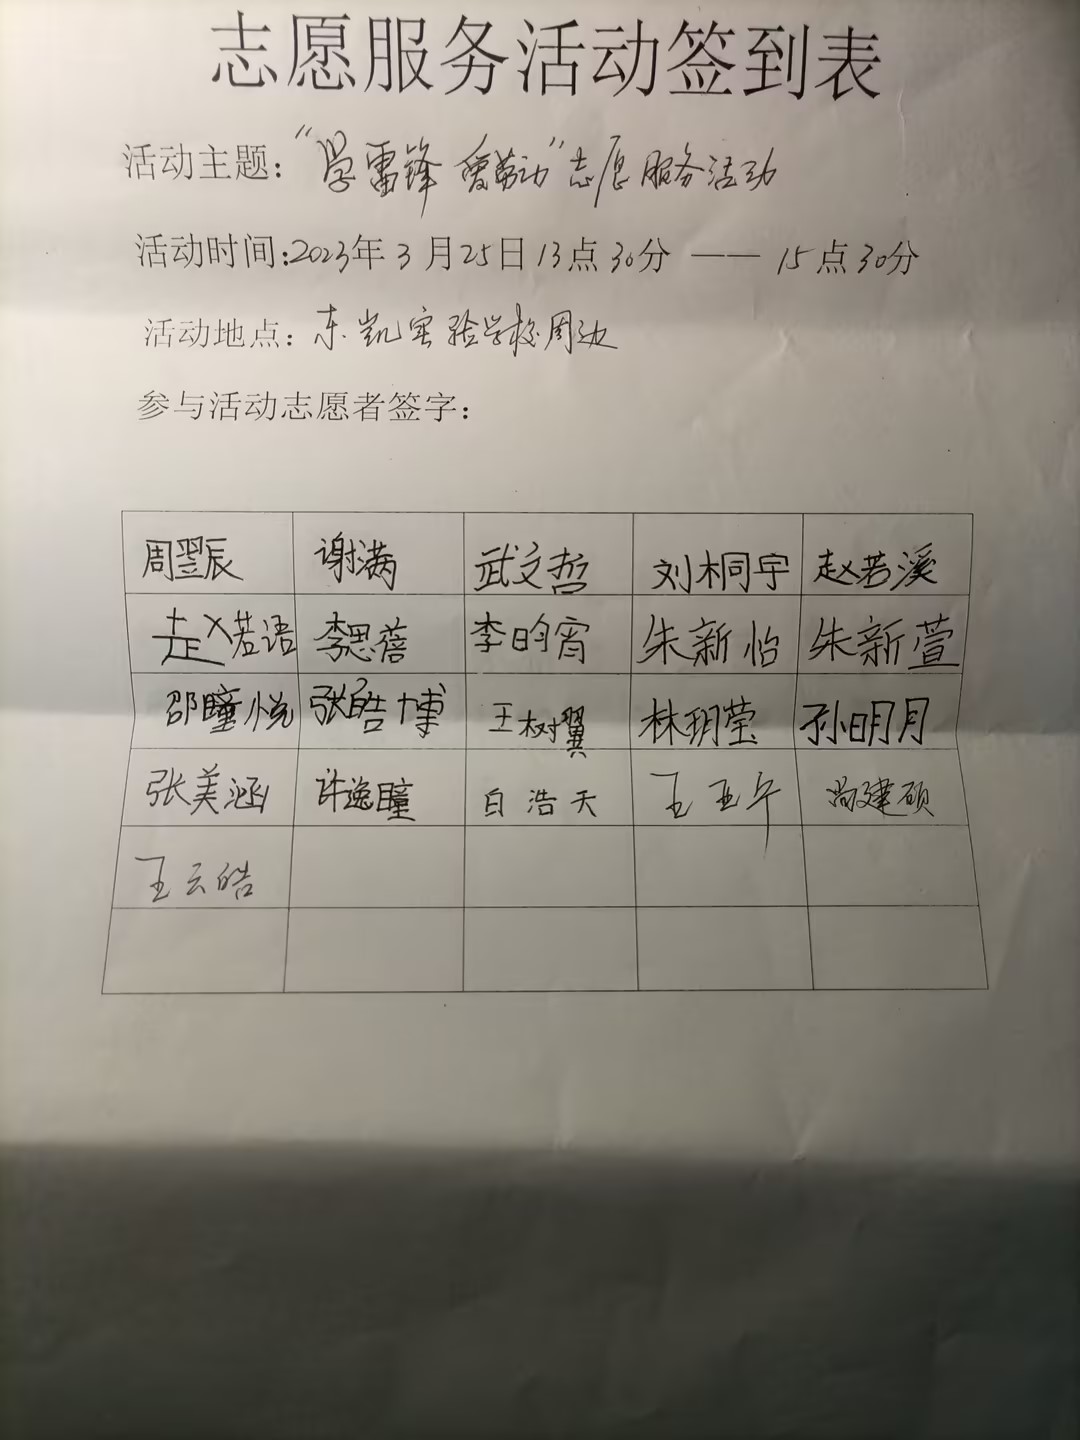 志愿服务活动签到表
活动主题：“学雷锋 爱劳动”志愿服务活动
活动时间:2023年3月25日13点30分 —— 15点30分
活动地点：东凯实验学校周边
参与活动志愿者签字：
周翌辰 谢满 武文哲 刘桐宇 赵若溪
赵若语 李思蓓 李昀宵 朱新怡 朱新萱
邵瞳悦 张皓博 王树翼 林玥莹 孙明月
张美涵 许逸瞳 白浩天 王亚午 尚建硕
王云皓